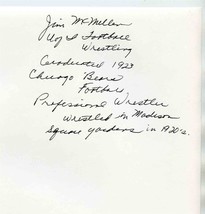 Jim McMillen
U of I Football
Wrestling
Graduated 1923
Chicago Bears
Football
Professional Wrestler
Wrestled in Madison
Square Gardens in 1920's.